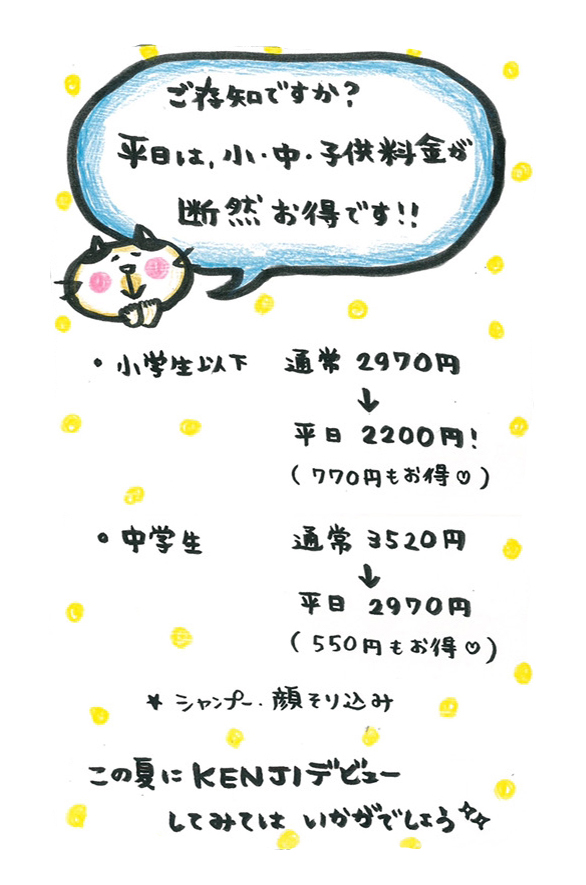 ご存知ですか?
平日は、小・中・子供料金が
断然お得です!!
・小学生以下 通常 2970円
↓
平日 2200円!
(770円もお得♡)
・中学生 通常 3520円
↓
平日 2970円
(550円もお得♡)
* シャンプー・顔そり込み
この夏にKENJIデビュー
してみてはいかがでしょう✨